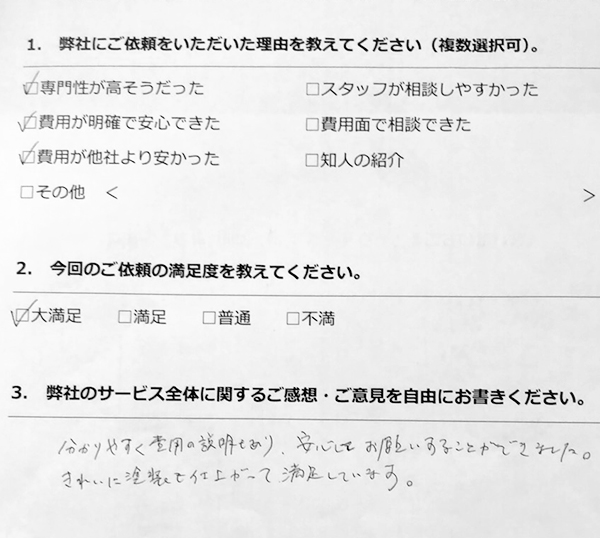 1. 弊社にご依頼をいただいた理由を教えてください（複数選択可）。
☑専門性が高そうだった □スタッフが相談しやすかった
☑費用が明確で安心できた □費用面で相談できた
☑費用が他社より安かった □知人の紹介
□その他 ＜ ＞
2. 今回のご依頼の満足度を教えてください。
☑大満足 □満足 □普通 □不満
3. 弊社のサービス全体に関するご感想・ご意見を自由にお書きください。
分かりやすく費用の説明もあり、安心してお願いすることができました。
きれいに塗装も仕上がって満足しています。